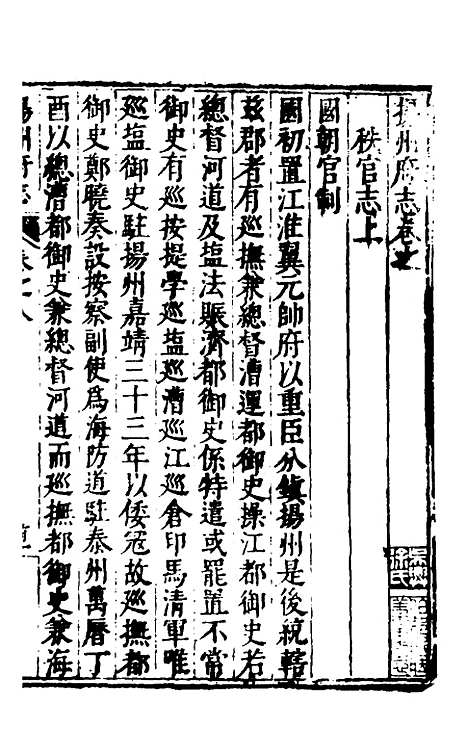 揚州府志卷之
秩官志上
國朝官制
國初置江淮翼元帥府以重臣分鎮揚州是後統轄
茲郡者有巡撫兼總督漕運都御史操江都御史若
總督河道及塩法賑濟都御史係特遣或罷置不常
御史有巡按提學巡塩巡漕巡江巡倉印馬清軍唯
巡塩御史駐揚州嘉靖三十三年以倭寇故巡撫都
御史鄭曉奏設按察副使為海防道駐泰州萬曆丁
酉以總漕都御史兼總督河道而巡撫都御史兼海
揚州府志 卷之八